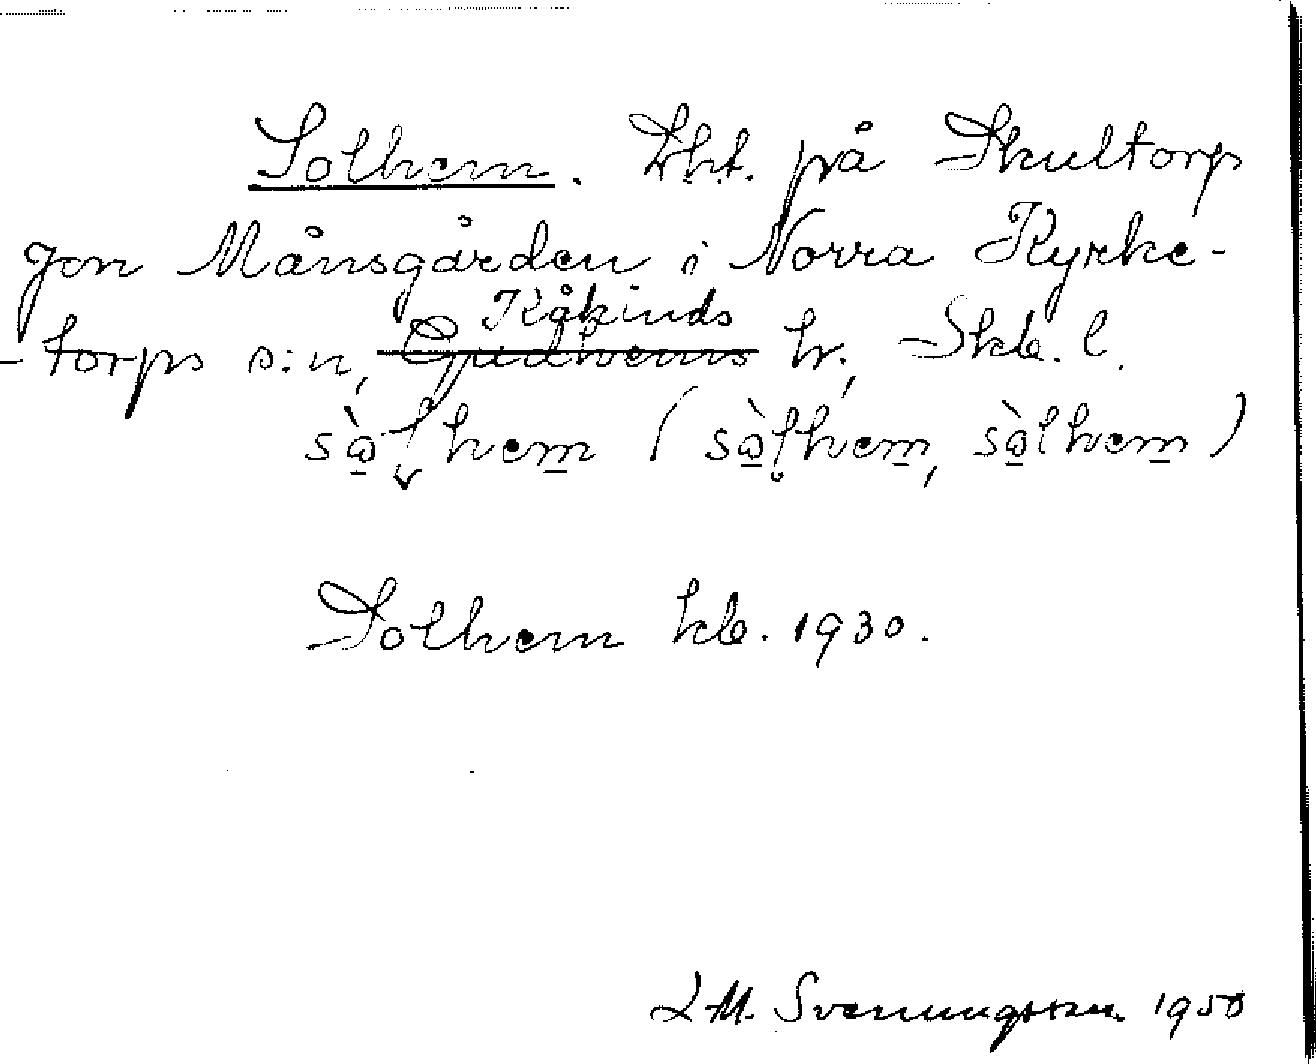 Solhem. Lht. på Skultorp
Jon Månsgården i Norra Kyrke-
Kåkinds
-torps s:n, Gudhems hr, Skb. l.
sò̠l̬hem̠ (sò̠l̥hem̠, sò̠lhem̠)
Solhem kb. 1930.
L M. Svenungsson 1950